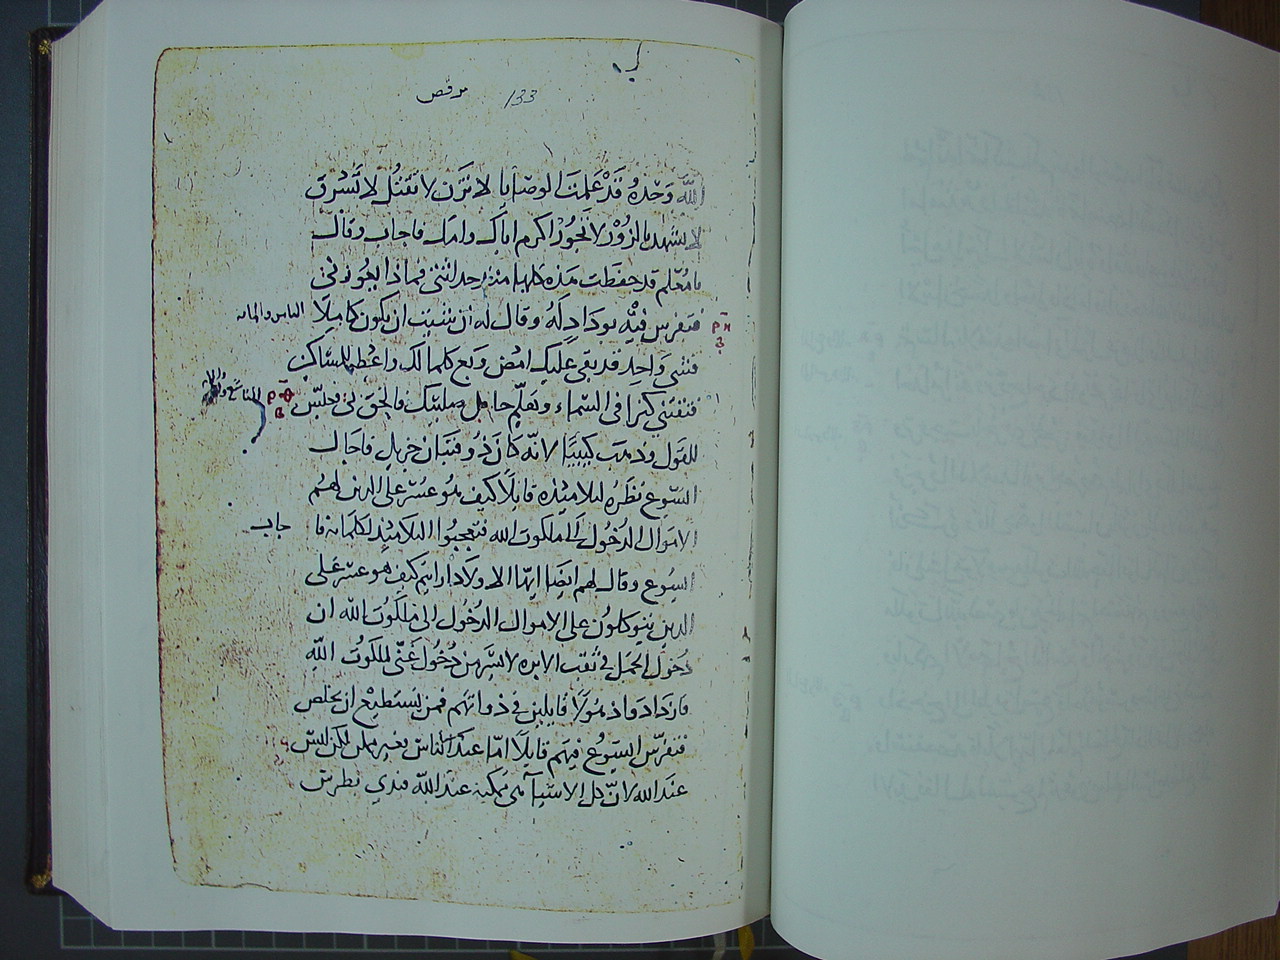 مرقص 133
الله وَحْدهُ قَدْ عَلمتَ الوصَايا لا تزَن لا تقتُل لا تَسْرق
لا تشهد بالزُوْر لا تجُورْ اكرم اباك وامك فاجاب وقال
يا مُعلم قد حفظت هذه كلها منذ حداثتي فماذا يعُوزني
فتفرس فيْه يوداد لهُ وقال له ان شيت ان يكون كامِلًا الناس والمايه
فشي وَاحِد قد بقى عليك امض وبع كلما لك واعْطه للمساكين
فتقتني كنزا في السماء وتعَلِّم حامل صليبك والحق بي فحلبّس
للقول وذهب كييبًا لانه كَان ذُو قنيان جزيل فاجال
اليَسوع نظرَه لتلاميذه قايلًا كيف هُو عسْر على الذين لهم
الاموَال الدُخُول الى ملكوت الله فتعجبوا التلاميْذ لكلمَاته فا جاب
اليسُوع وقال لهم ايضًا ايها الاولاد ارايتم كيف هو عسْر على
الدين يتوكلون على الاموال الدُخُول الى مَلكُوت الله ان
دُخول الجَمل في ثقب الابره لاسْهل من دُخُول غنّي لملكوت الله
فازدادَوا ذهُولًا قايلين في ذواتهم فمن يَستطيْع ان يخلص
فتفرّس اليَسُوع فيهَم قايلًا امّا عند الناس فغير ممكن لكن ليس
عنَد الله لانّ كل الاشيآ هي مَمكنه عند الله فبدي بطرس